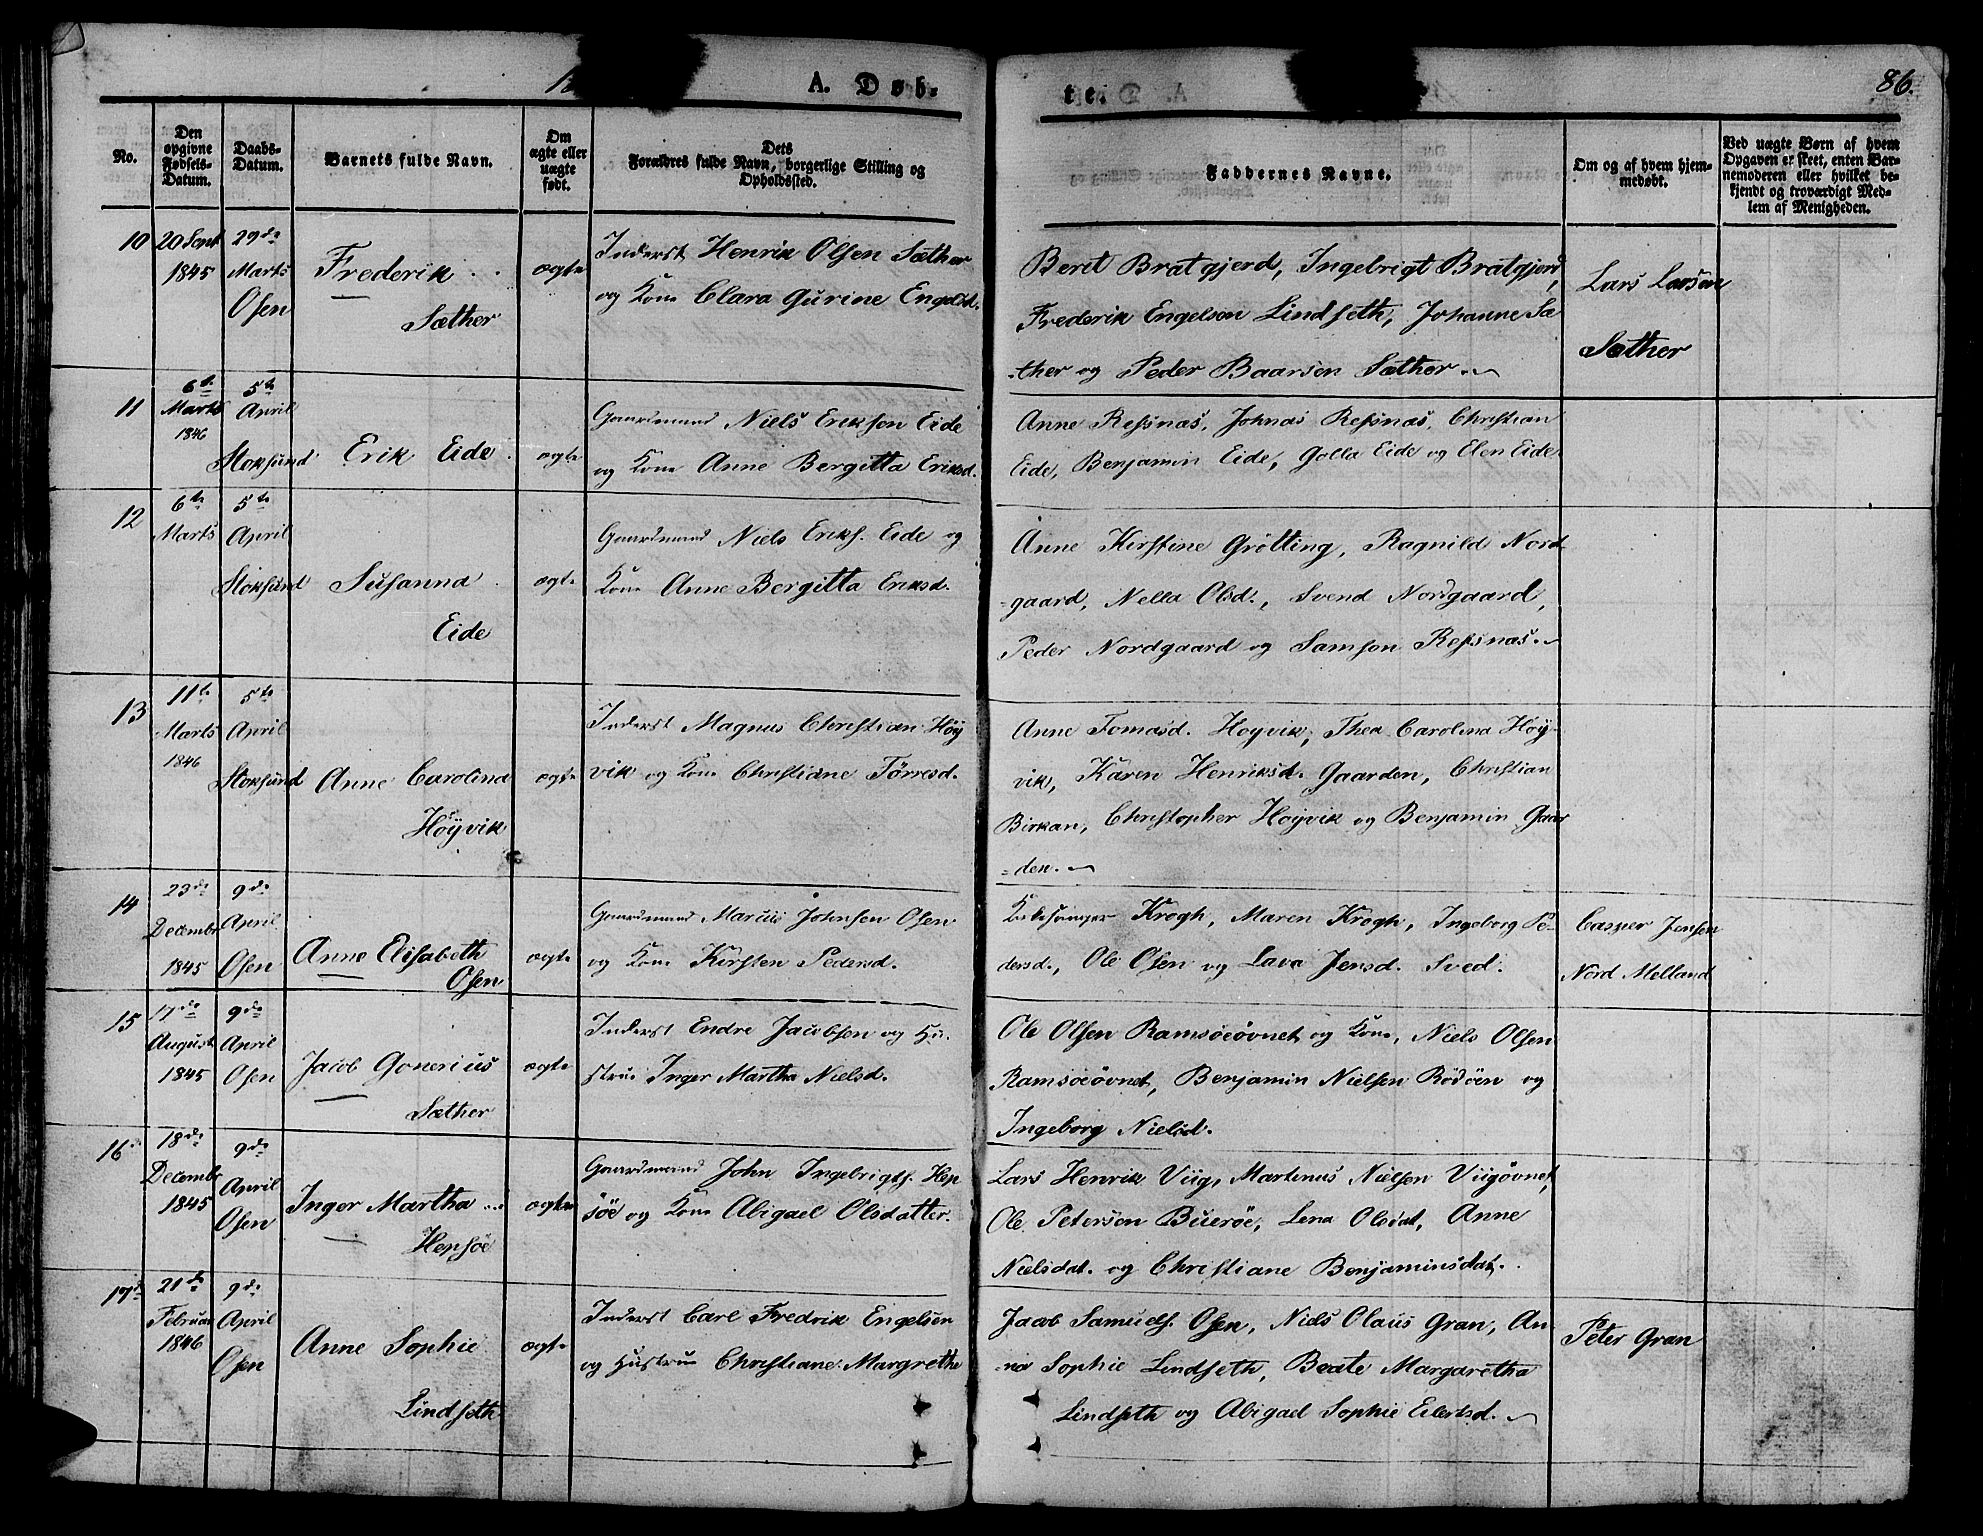 A. Døb-
te.
86.
No.
Den
opgivne
Fødsels-
Datum.
Daabs-
Datum.
Barnets fulde Navn.
Om
ægte eller
uægte
født.
Dets
Forældres fulde Navn, borgerlige Stilling og
Opholdssted.
Faddernes Navne.
Om og af hvem hjem-
medøbt.
Ved uægte Børn af hvem
Opgaven er skeet, enten Bar-
nemoderen eller hvilket be-
kjendt og troværdigt Med-
lem af Menigheden.
10
20 Sept
1845
29de
Marts
Osen
Frederik
Sæther
ægte
Inderst Henrik Olsen Sæther
og Kone Clara Gurine Engelsd.
Beret Bratgjerd, Ingebrigt Bratgjerd,
Frederik Engelsen Lindseth, Johanne Sæ
-ther og Peder Baarsen Sæther.
Lars Larsen
Sæther
11
6te
Marts
1846
5te
April
Stoksund
Erik Eide
ægte
Gaardmand Niels Eriksen Eide
og Kone Anne Bergitta Eriksd.
Anne Ressnæs, Johnas Ressnæs, Christian
Eide, Benjamin Eide, Golla Eide og Elen Eide
12
6te
Marts
5te
April
Stoksund
Susanna
Eide
ægte
Gaardmand Niels Eriks. Eide og
Kone Anne Bergitta Eriksd.
Anne Kirstine Grötting, Ragnild Nord
-gaard, Nella Olsd., Svend Nordgaard,
Peder Nordgaard og Samson Ressnæs.
13
11te
Marts
1846
5te
April
Stoksund
Anne Carolina
Höyvik
ægte
Inderst Magnus Christian Höy
vik og Kone Christiane Törresd.
Anne Tomasd. Hoyvik, Thea Carolina Höy-
vik, Karen Henriksd. Gaarden, Christian
Birkan, Christopher Hoyvik og Benjamin Gaar
-den.
14
23de
Decembr
1845
9de
April
Osen
Anne Elisabeth
Osen
ægte
Gaardmand Marius Johnsen Osen
og Kone Kirsten Pedersd.
Kirkesanger Krogh, Maren Krogh, Ingeborg Pe-
dersd., Ole Osen og Lava Jensd. Sved.
Casper Jensen
Nord Melland
15
17de
August
1845
9de
April
Osen
Jacob Gonerius
Sæther
ægte
Inderst Endre Jacobsen og Hu-
strue Inger Martha Nielsd.
Ole Olsen Ramsöeövnet og Kone, Niels Olsen
Ramsöeövnet, Benjamin Nielsen Rödöen og
Ingeborg Nielsd.
16
18de
Decembr
1845
9de
April
Osen
Inger Martha
Hepsöe
ægte
Gaardmand John Ingebrigts. Hep
söe og Kone Abigael Olsdatter.
Lars Henrik Viig, Martinus Nielsen Viigövnet,
Ole Petersen Bueröe, Lena Olsdat, Anne
Nielsdat. og Christiane Benjaminsdat.
17de
21de
Februar
1846
9de
April
Osen
Anne Sophie
Lindseth
ægte
Inderst Carl Fredrik Engelsen
og Hustrue Christiane Margrethe
Jacob Samuels. Osen, Niels Olaus Gran, An-
-na Sophie Lindseth, Beate Margaretha
Lindseth og Abigael Sophie Eilertsd.
Peter Gran